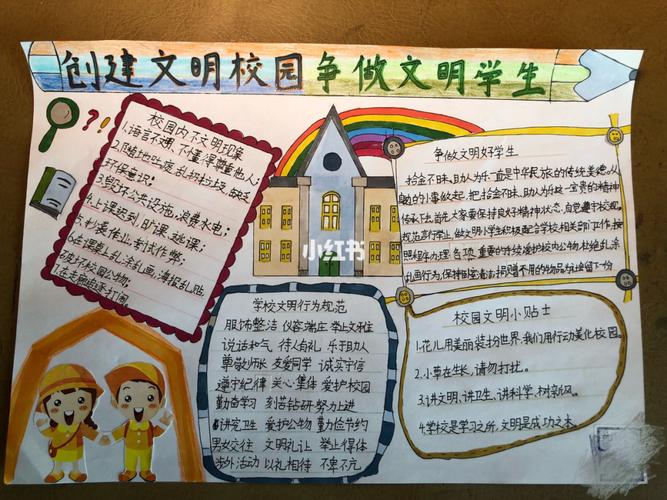 创建文明校园争做文明学生
校园内不文明现象
1.语言不文明,不懂得尊重他人;
2.随地吐痰,乱扔垃圾,缺乏
环保意识;
3.毁坏公共设施,浪费水电;
4.上课迟到,旷课,逃课;
5.抄袭作业,考试作弊;
6.在课桌上乱涂乱画,海报乱贴,
破坏校园公物;
7.在走廊追逐打闹。
小红书
争做文明好学生
拾金不昧,助人为乐一直是中华民族的传统美德,从
身边的小事做起,把拾金不昧,助人为乐这一宝贵的精神
传承下去。首先大家要保持良好精神状态,自觉遵守校规,
规范言行
学校文明行为规范
服饰整洁 仪容端庄 举止文雅
说话和气 待人有礼 乐于助人
尊敬师长 友爱同学 诚实守信
遵守纪律 关心集体 爱护校园
勤奋学习 刻苦钻研 努力上进
讲究卫生 爱护公物 勤俭节约
男女交往 文明礼让 举止得体
涉外活动 以礼相待 不卑不亢
校园文明小贴士
1.花儿用美丽装扮世界,我们用行动美化校园。
2.小草在生长,请勿打扰。
3.讲文明,讲卫生,讲科学,树新风。
4.学校是学习之所,文明是成功之本。